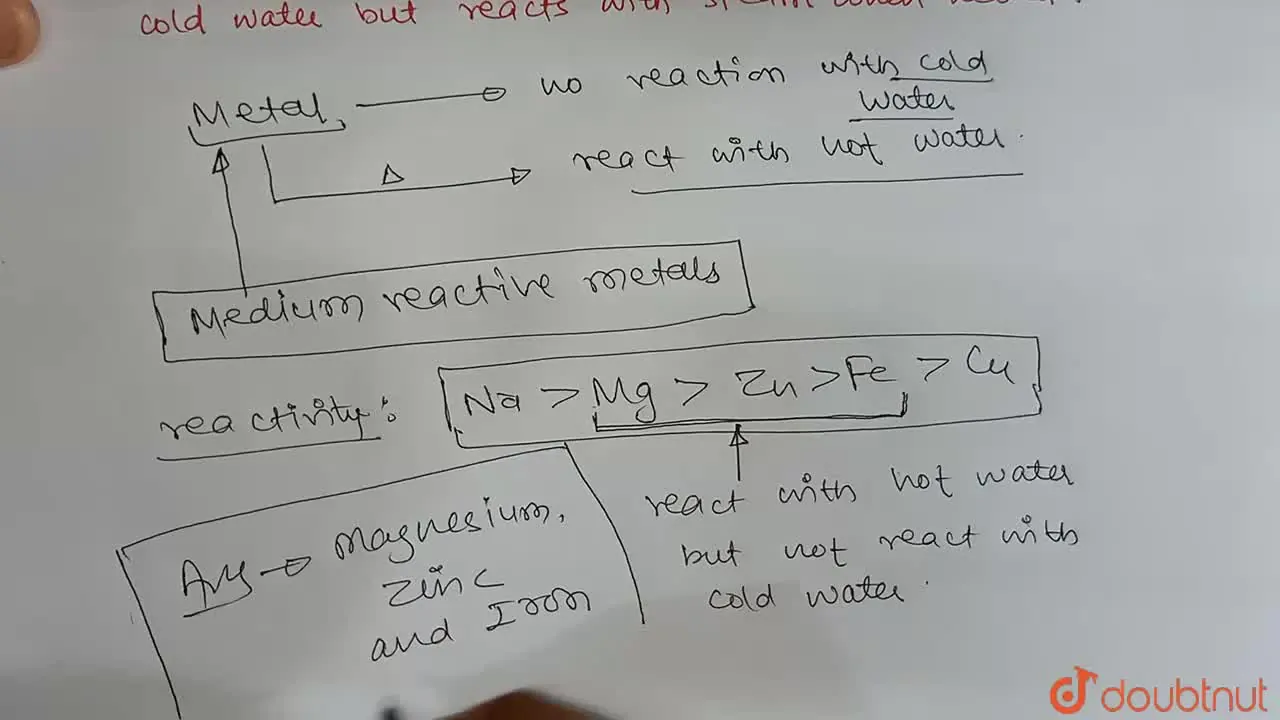 cold water but reacts with steam when
Metal, no reaction with cold
water
Δ react with hot water.
Medium reactive metals
reactivity: Na > Mg > Zn > Fe > Cu
Ans → magnesium,
zinc
and Iron
react with hot water
but not react with
cold water.
doubtnut